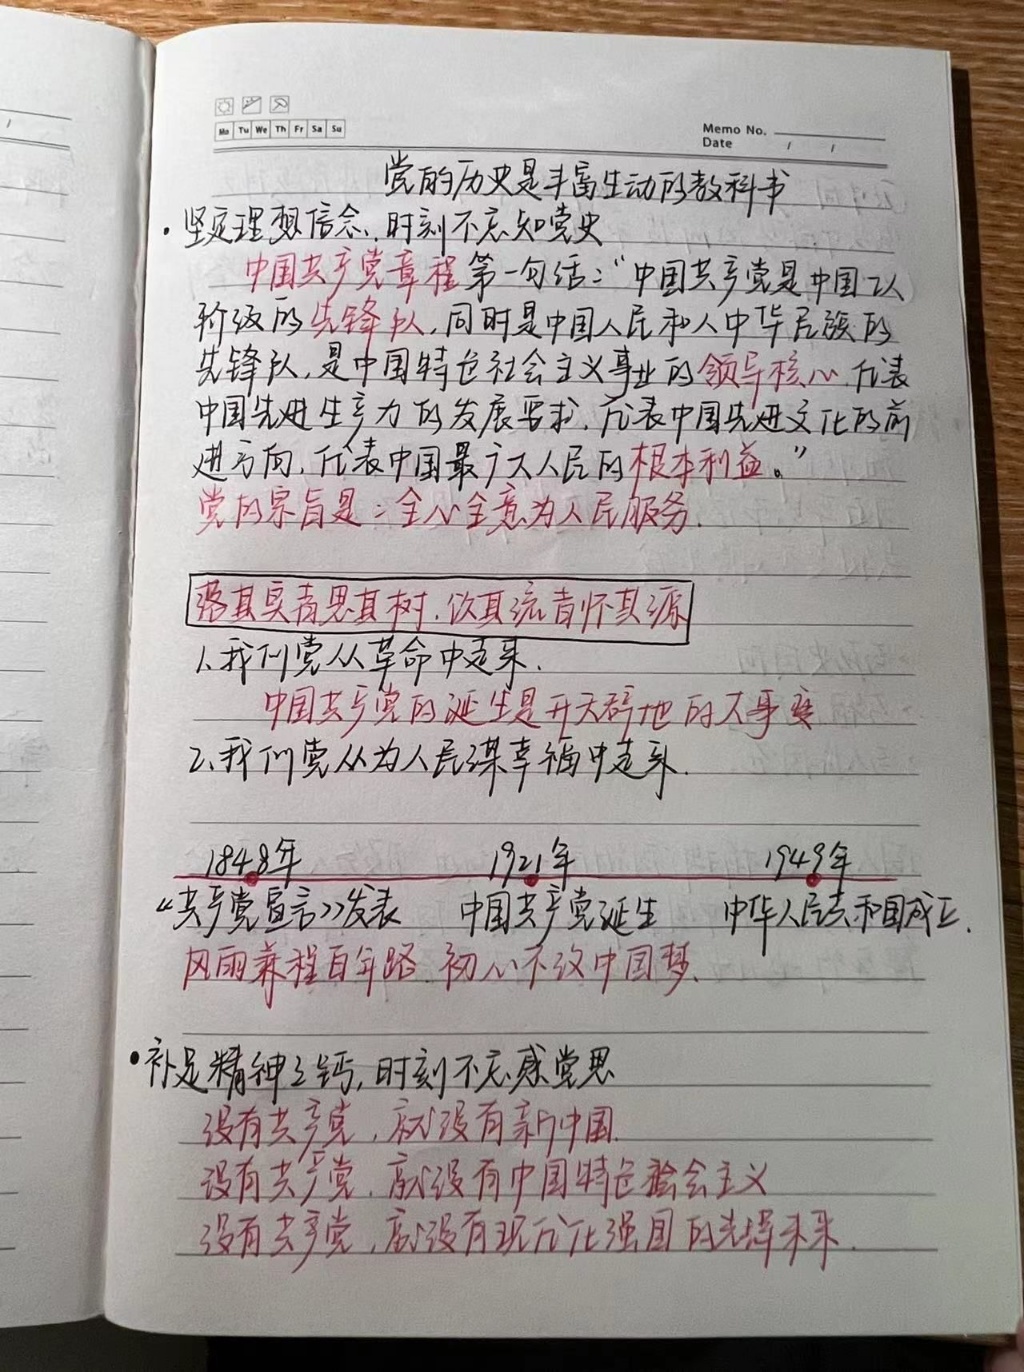 Mo Tu We Th Fr Sa Su
Memo No.
Date / /
党的历史是丰富生动的教科书
·坚定理想信念,时刻不忘知党史
中国共产党章程第一句话:“中国共产党是中国工人
阶级的先锋队,同时是中国人民和人中华民族的
先锋队,是中国特色社会主义事业的领导核心,代表
中国先进生产力的发展要求,代表中国先进文化的前
进方向,代表中国最广大人民的根本利益。”
党的宗旨是:全心全意为人民服务.
落其实者思其树,饮其流者怀其源
1.我们党从革命中走来.
中国共产党的诞生是开天辟地的大事变
2.我们党从为人民谋幸福中走来.
1848年 1921年 1949年
《共产党宣言》发表 中国共产党诞生 中华人民共和国成立.
风雨兼程百年路 初心不改中国梦.
·补足精神之钙,时刻不忘感党恩
没有共产党,就没有新中国.
没有共产党,就没有中国特色社会主义
没有共产党,就没有现代化强国的光辉未来.